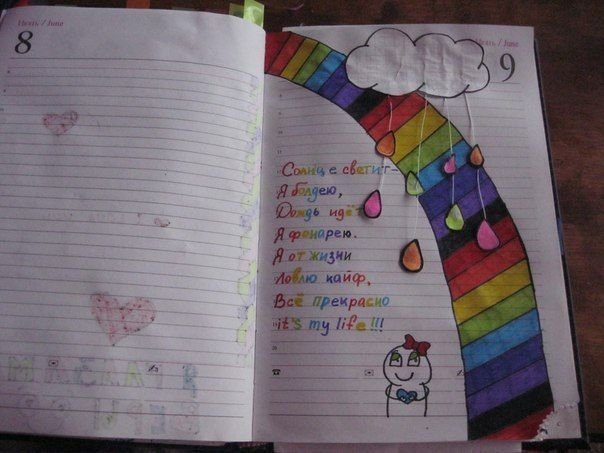 Июнь / June
8
Июнь / June
9
Солнце светит-
Я болдею,
Дождь идёт
Я фонарею.
Я от жизни
Ловлю кайф,
Всё прекрасно
it's my life!!!